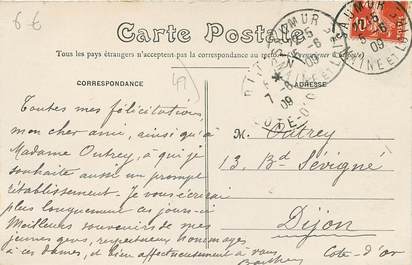 6 €
Carte Postale
Tous les pays étrangers n'acceptent pas la correspondance au recto
CORRESPONDANCE
ADRESSE
SAUMUR
5-6
09
MAINE ET LOIRE
SAUMUR
5-6
09
MAINE ET LOIRE
7-6
09
COTE-D'OR
Toutes mes félicitations,
mon cher ami, ainsi qu'à
Madame Outrey, à qui je
souhaite aussi un prompt
rétablissement. Je vous écrirai
plus longuement ces jours-ci
Meilleurs souvenirs de mes
jeunes gens, respectueux hommages
à ces dames, et bien affectueusement à vous
M. Outrey
13, Bd Sévigné
Dijon
Cote-d'or